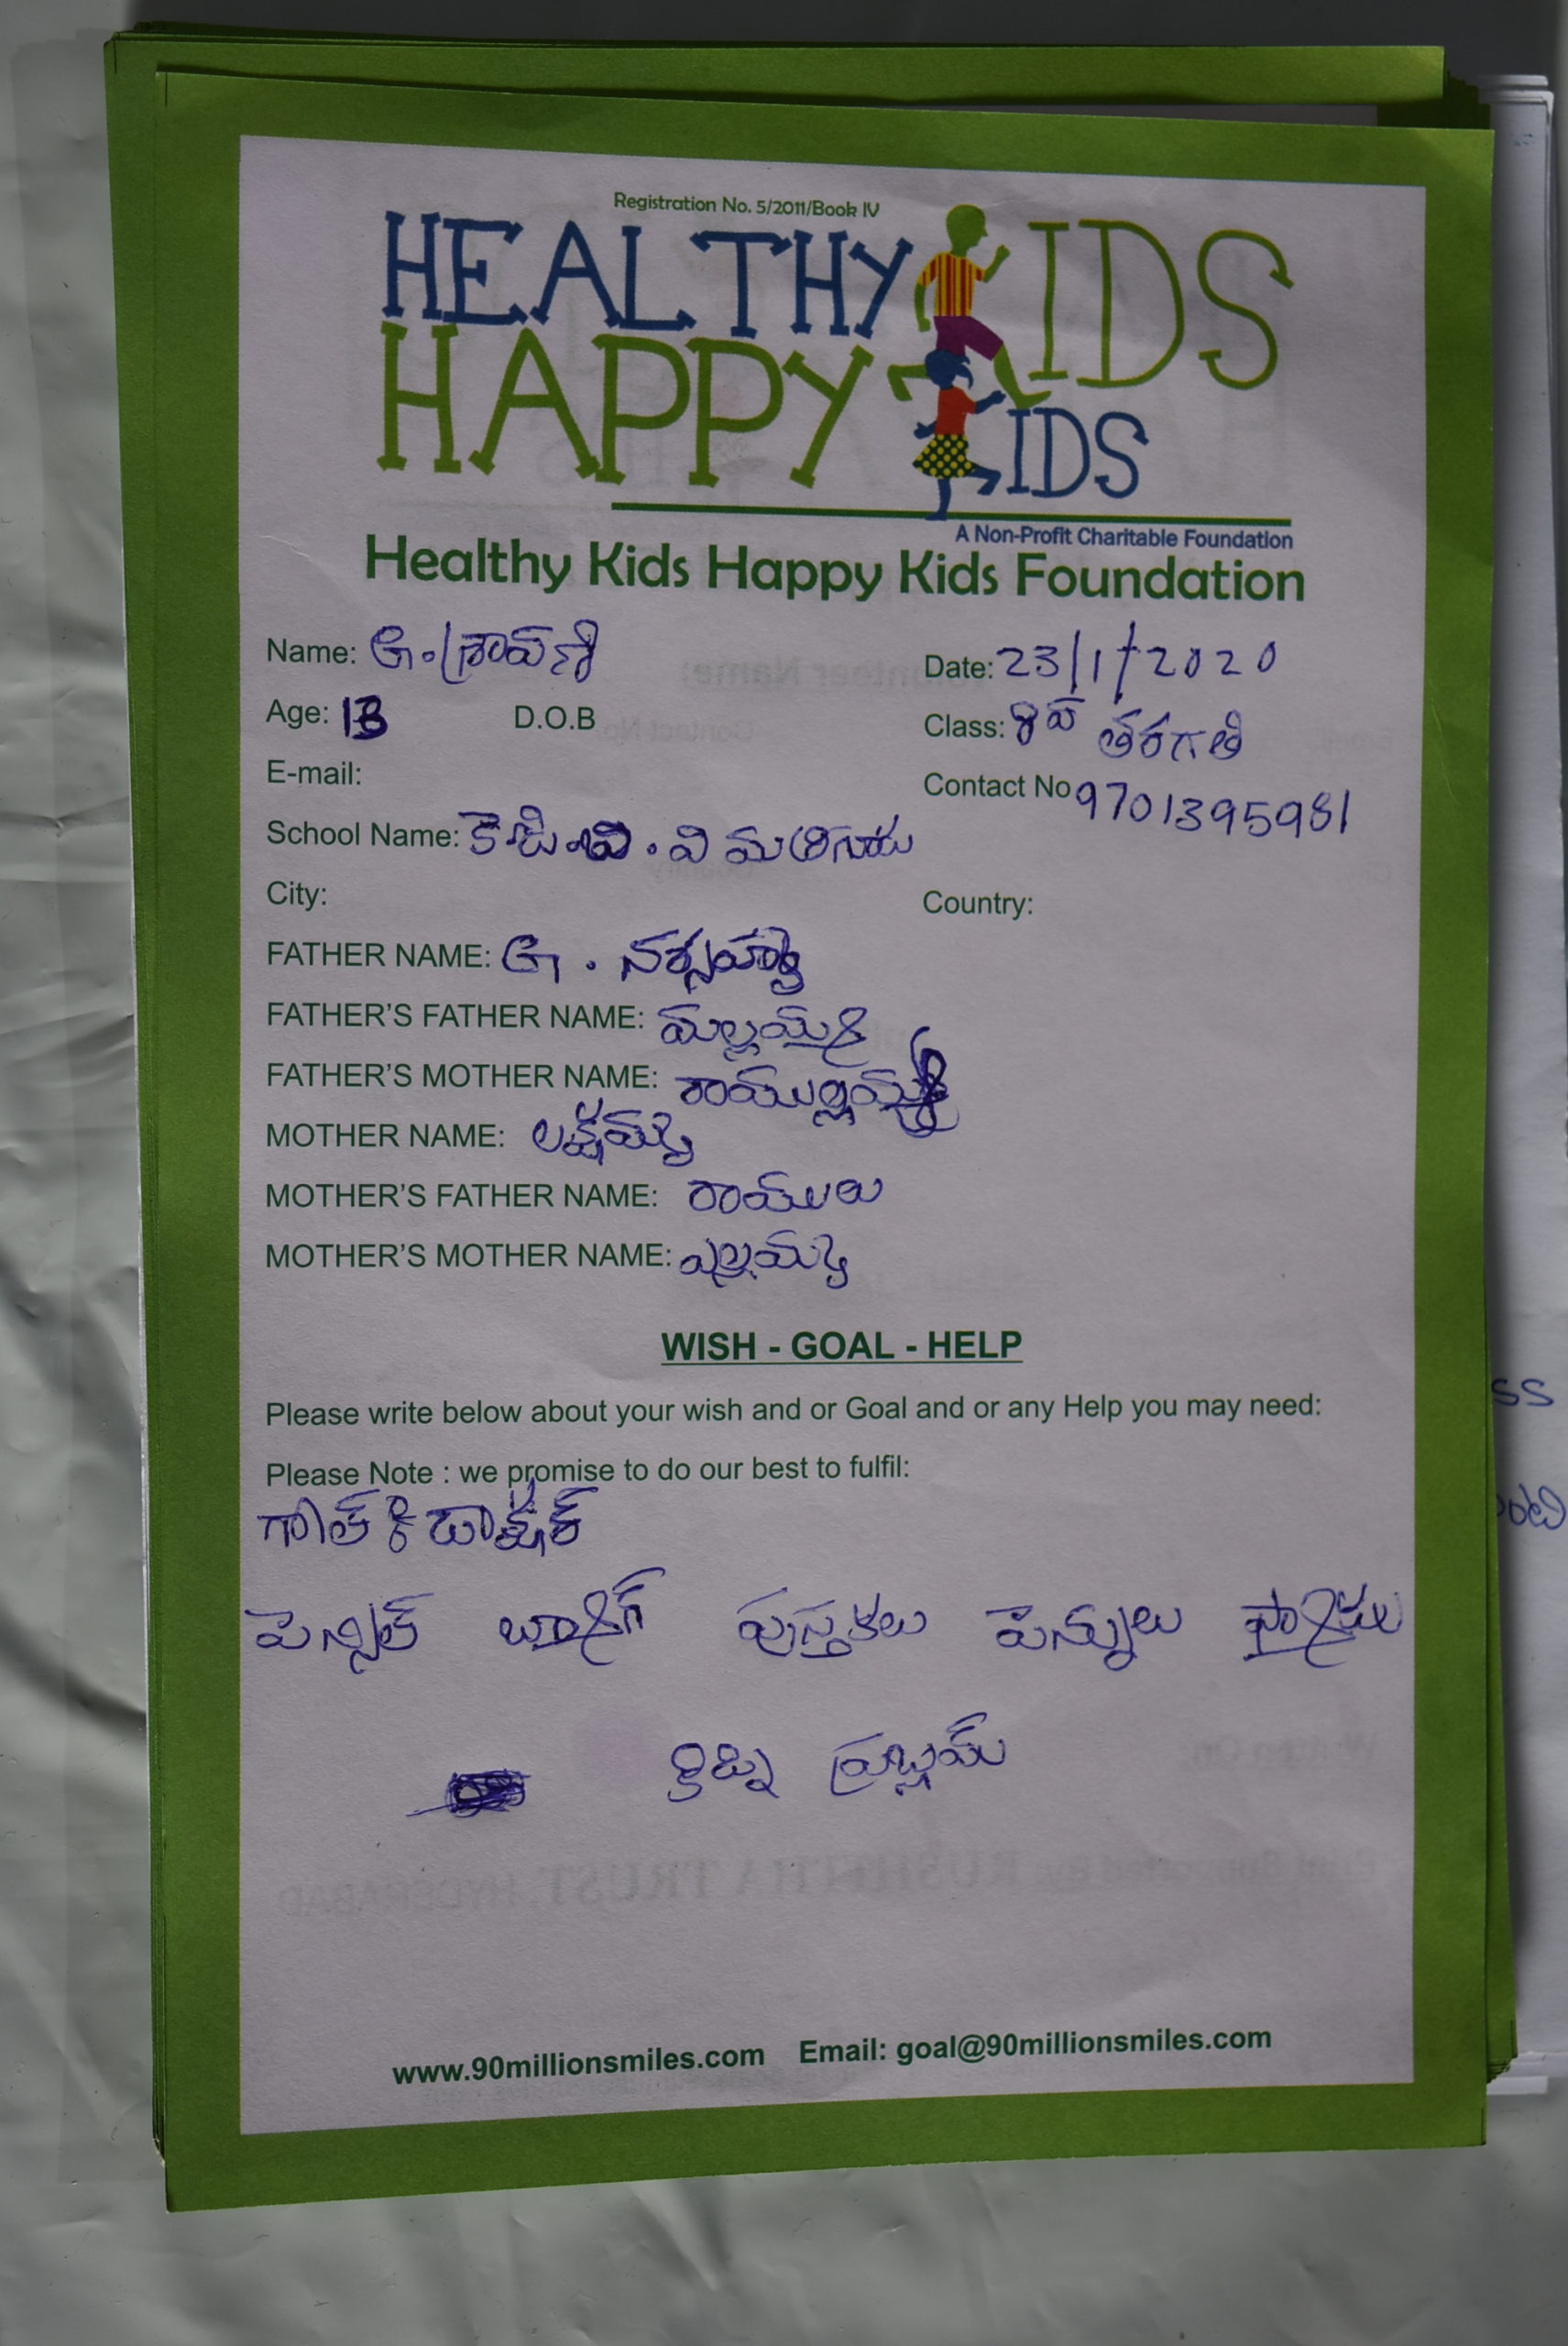 Registration No. 5/2011/Book IV
HEALTHY KIDS
HAPPY KIDS
A Non-Profit Charitable Foundation
Healthy Kids Happy Kids Foundation
Name: G. శ్రావణి Date: 23/1/2020
Age: 13 D.O.B Class: 8వ తరగతి
E-mail: Contact No 9701395981
School Name: కె.జి. . వి
City: Country:
FATHER NAME: G.
FATHER'S FATHER NAME: మల్లయ్య
FATHER'S MOTHER NAME:
MOTHER NAME: లక్ష్మమ్మ
MOTHER'S FATHER NAME: రాములు
MOTHER'S MOTHER NAME: ఎల్లమ్మ
WISH - GOAL - HELP
Please write below about your wish and or Goal and or any Help you may need:
Please Note : we promise to do our best to fulfil:
డాక్టర్
పెన్సిల్ బ్యాగ్ పుస్తకలు పెన్నులు
కిడ్ని ప్రబ్లమ్
www.90millionsmiles.com Email: goal@90millionsmiles.com